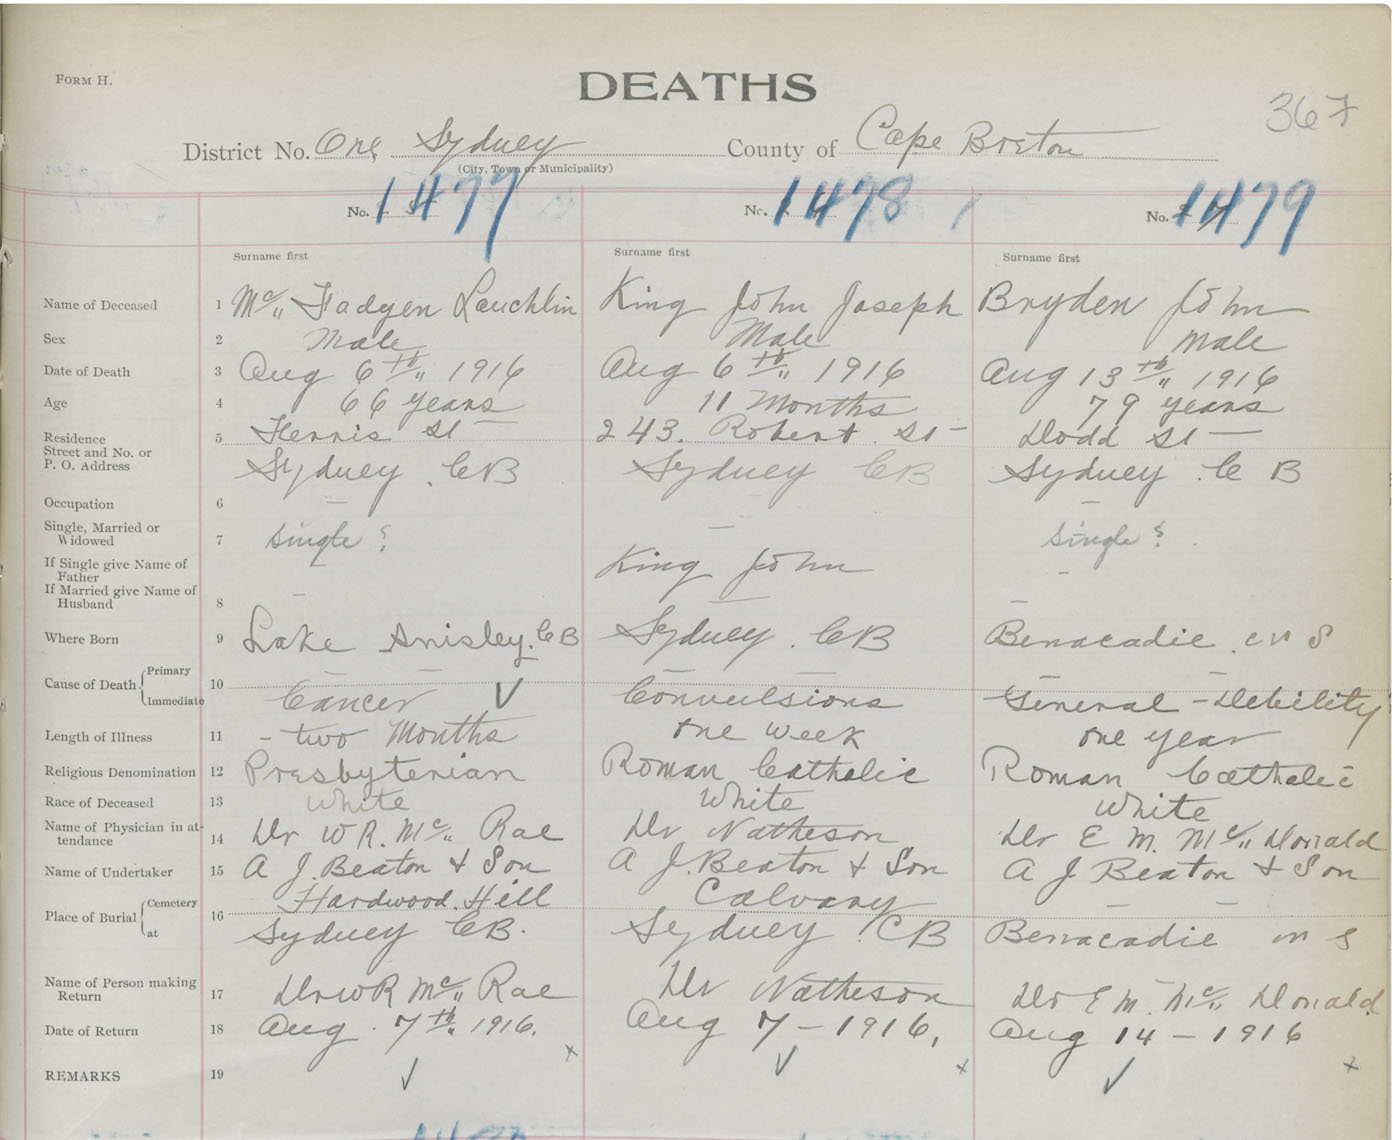 FORM H.
DEATHS
367
District No. One Sydney County of Cape Breton
(City, Town or Municipality)
No. 1477 No. 1478 No. 1479
Surname first Surname first Surname first
Name of Deceased 1 Mc Fadyen Lauchlin King John Joseph Bryden John
Sex 2 Male Male Male
Date of Death 3 Aug 6th 1916 Aug 6th 1916 Aug 13th 1916
Age 4 66 years 11 Months 79 years
Residence 5 Ferris St 243. Robert St Dodd St
Street and No. or
P. O. Address Sydney C B Sydney C B Sydney C B
Occupation 6 – – –
Single, Married or
Widowed 7 Single? – Single?
If Single give Name of
Father King John –
If Married give Name of
Husband 8 – – –
Where Born 9 Lake Ainsley. C B Sydney. C B Benacadie. C N S
Cause of Death Primary – – –
10
Immediate Cancer ✓ Convulsions General - Debility
Length of Illness 11 - two Months one week one year
Religious Denomination 12 Presbyterian Roman Catholic Roman Catholic
Race of Deceased 13 White White White
Name of Physician in at-
tendance 14 Dr W R. Mc Rae Dr Natheson Dr E M. Mc Donald
Name of Undertaker 15 A J. Beaton & Son A J. Beaton & Son A J Beaton & Son
Place of Burial Cemetery Hardwood. Hill Calvary – –
16
at Sydney C B. Sydney. C B Benacadie N S
Name of Person making
Return 17 Dr W R Mc Rae Dr Natheson Dr E M. Mc Donald.
Date of Return 18 Aug. 7th 1916. Aug 7 – 1916. Aug 14 – 1916
REMARKS 19 ✓ x ✓ x ✓ x